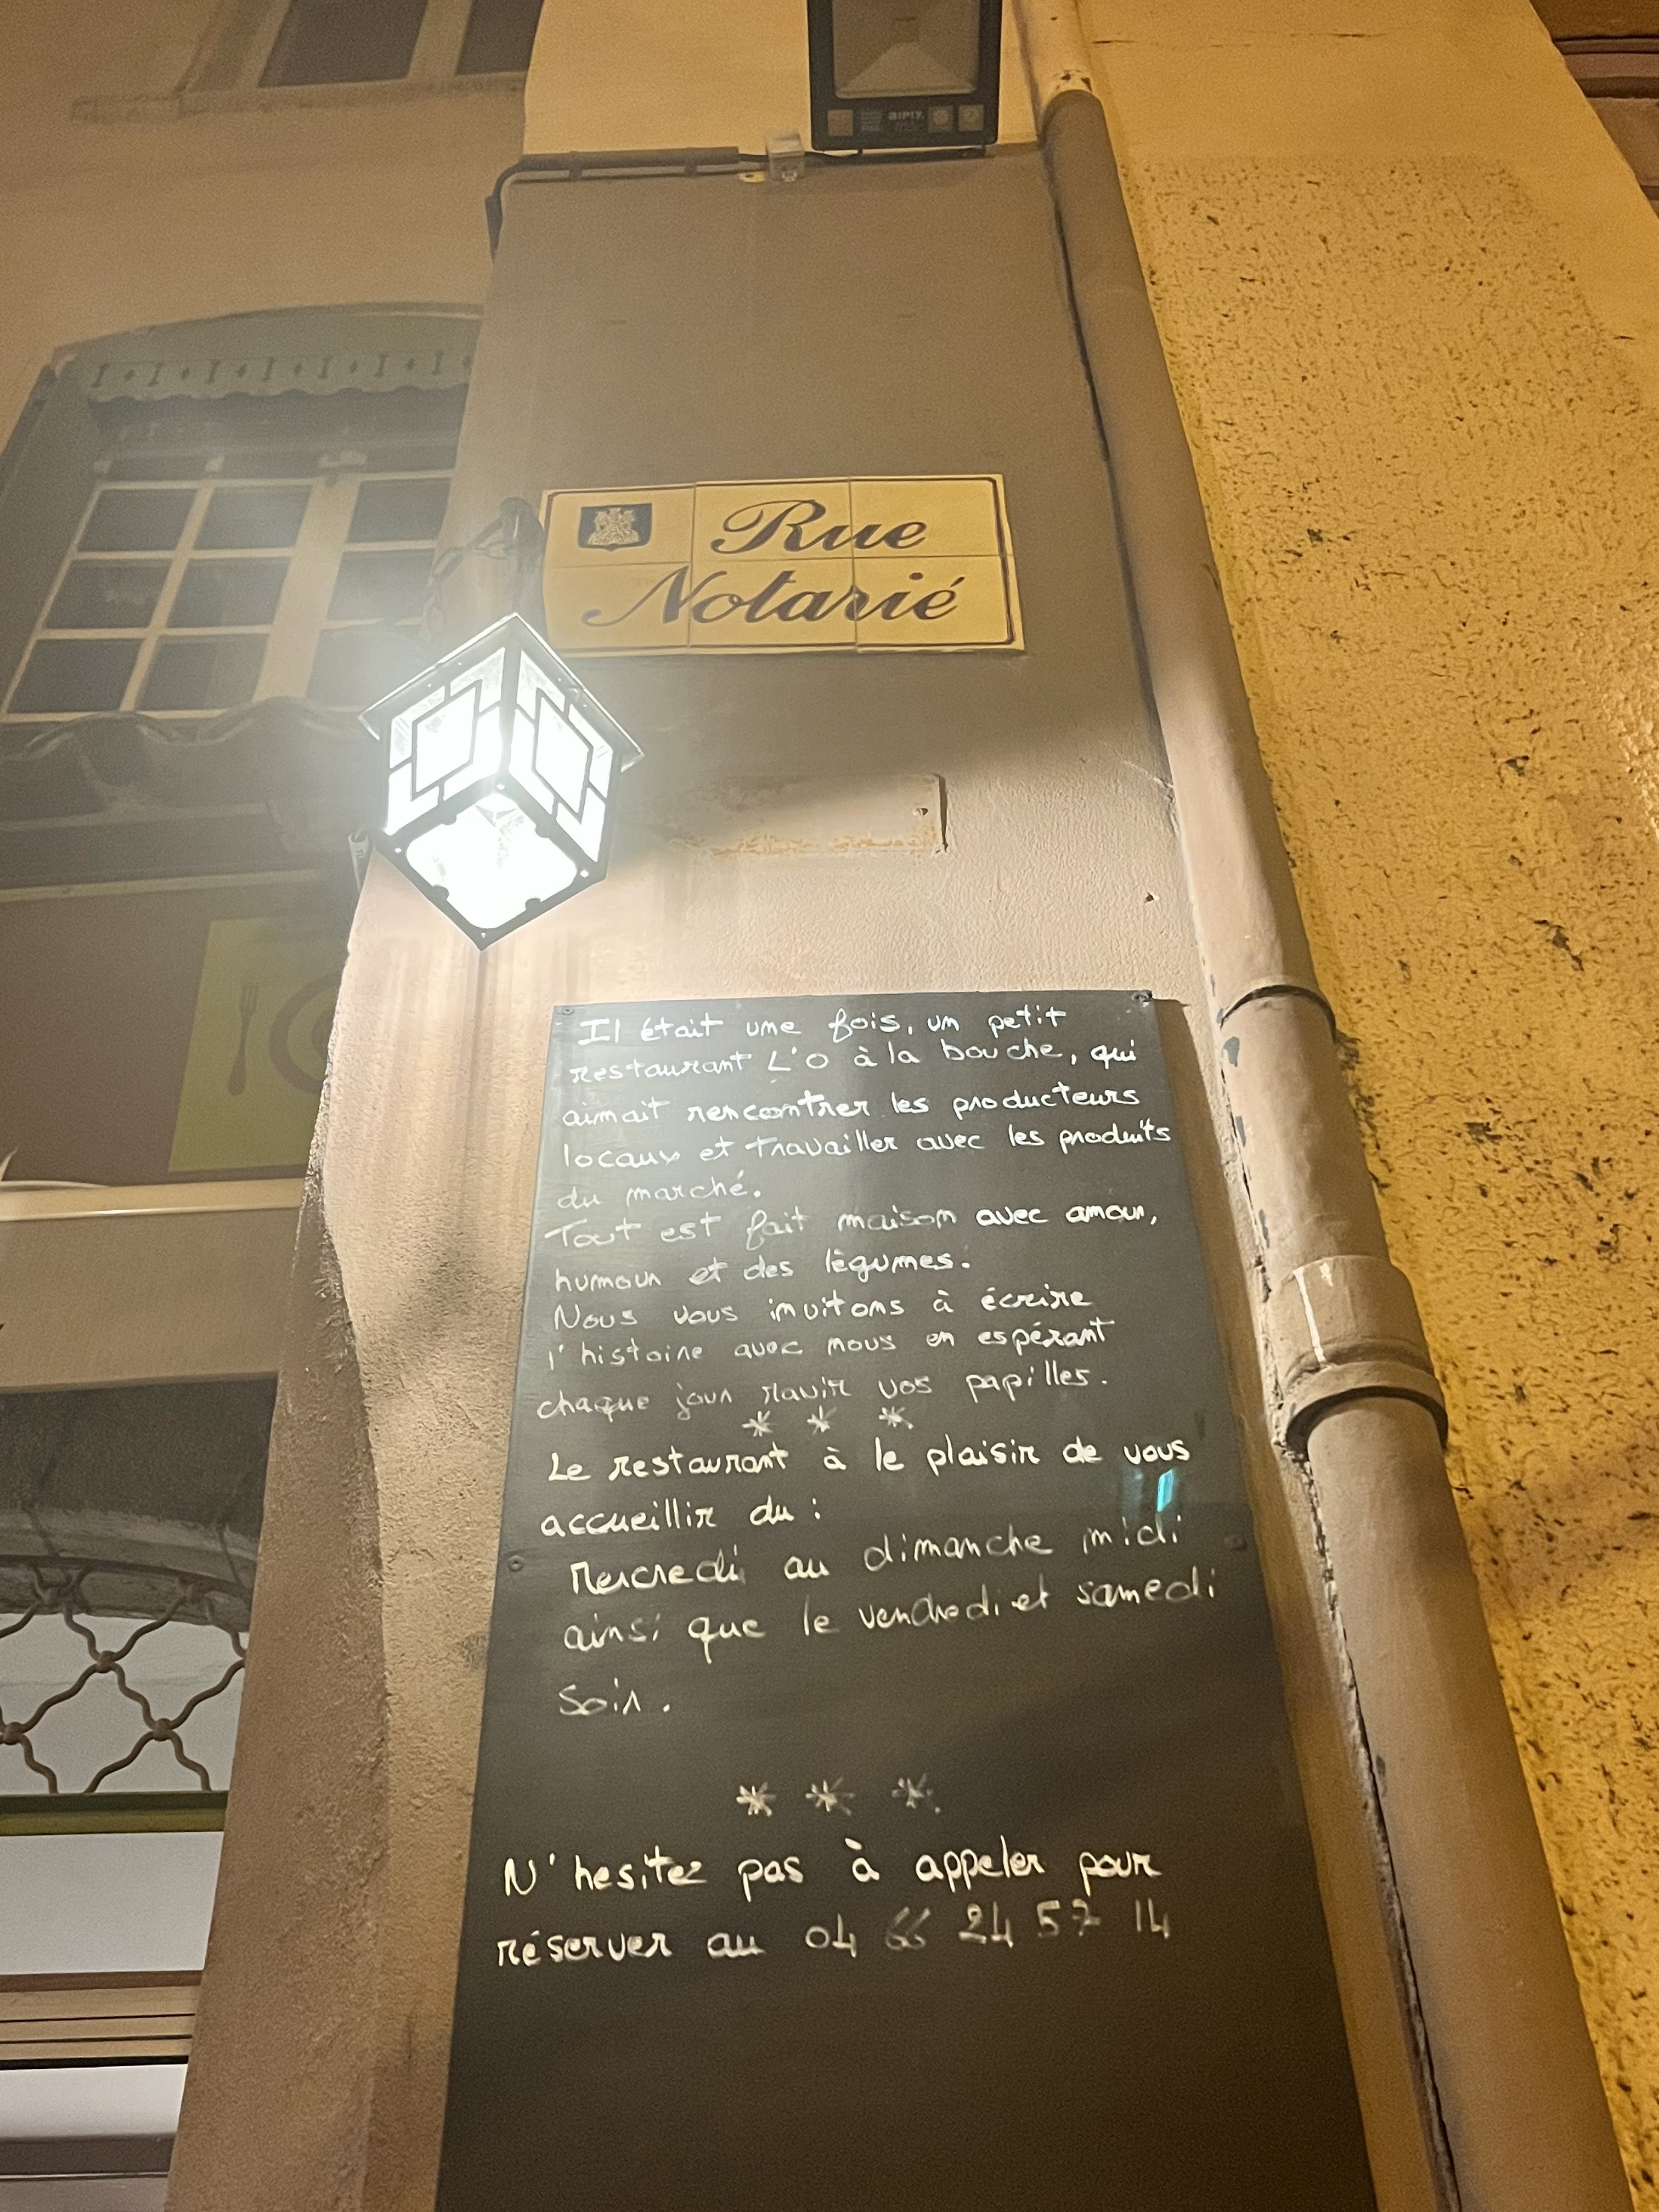 Rue
Notarié
Il était une fois, un petit
restaurant L'O à la bouche, qui
aimait rencontrer les producteurs
locaux et travailler avec les produits
du marché.
Tout est fait maison avec amour,
humour et des légumes.
Nous vous invitons à écrire
l'histoire avec nous en espérant
chaque jour ravir vos papilles.
* * *
Le restaurant à le plaisir de vous
accueillir du :
Mercredi au dimanche midi
ainsi que le vendredi et samedi
soir.
* * *
N'hesitez pas à appeler pour
réserver au 04 66 24 57 14